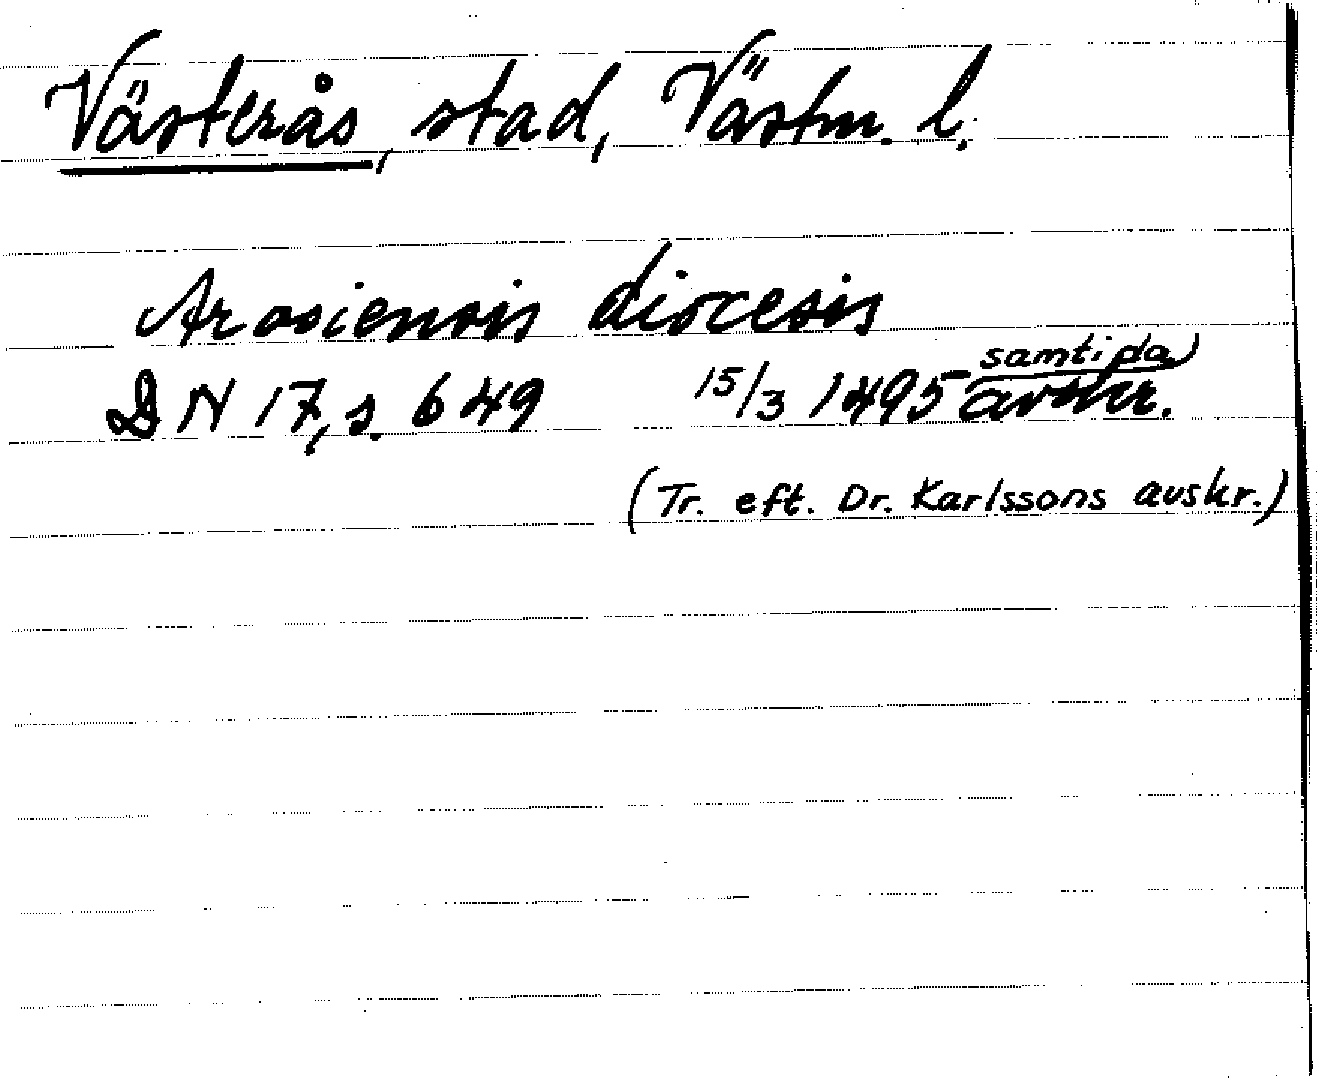 Västerås, stad, Västm. l.
Arosiensis diocesis
DN 17, s. 649 15/3 1495 samtida avskr.
(Tr. eft. Dr. Karlssons avskr.)